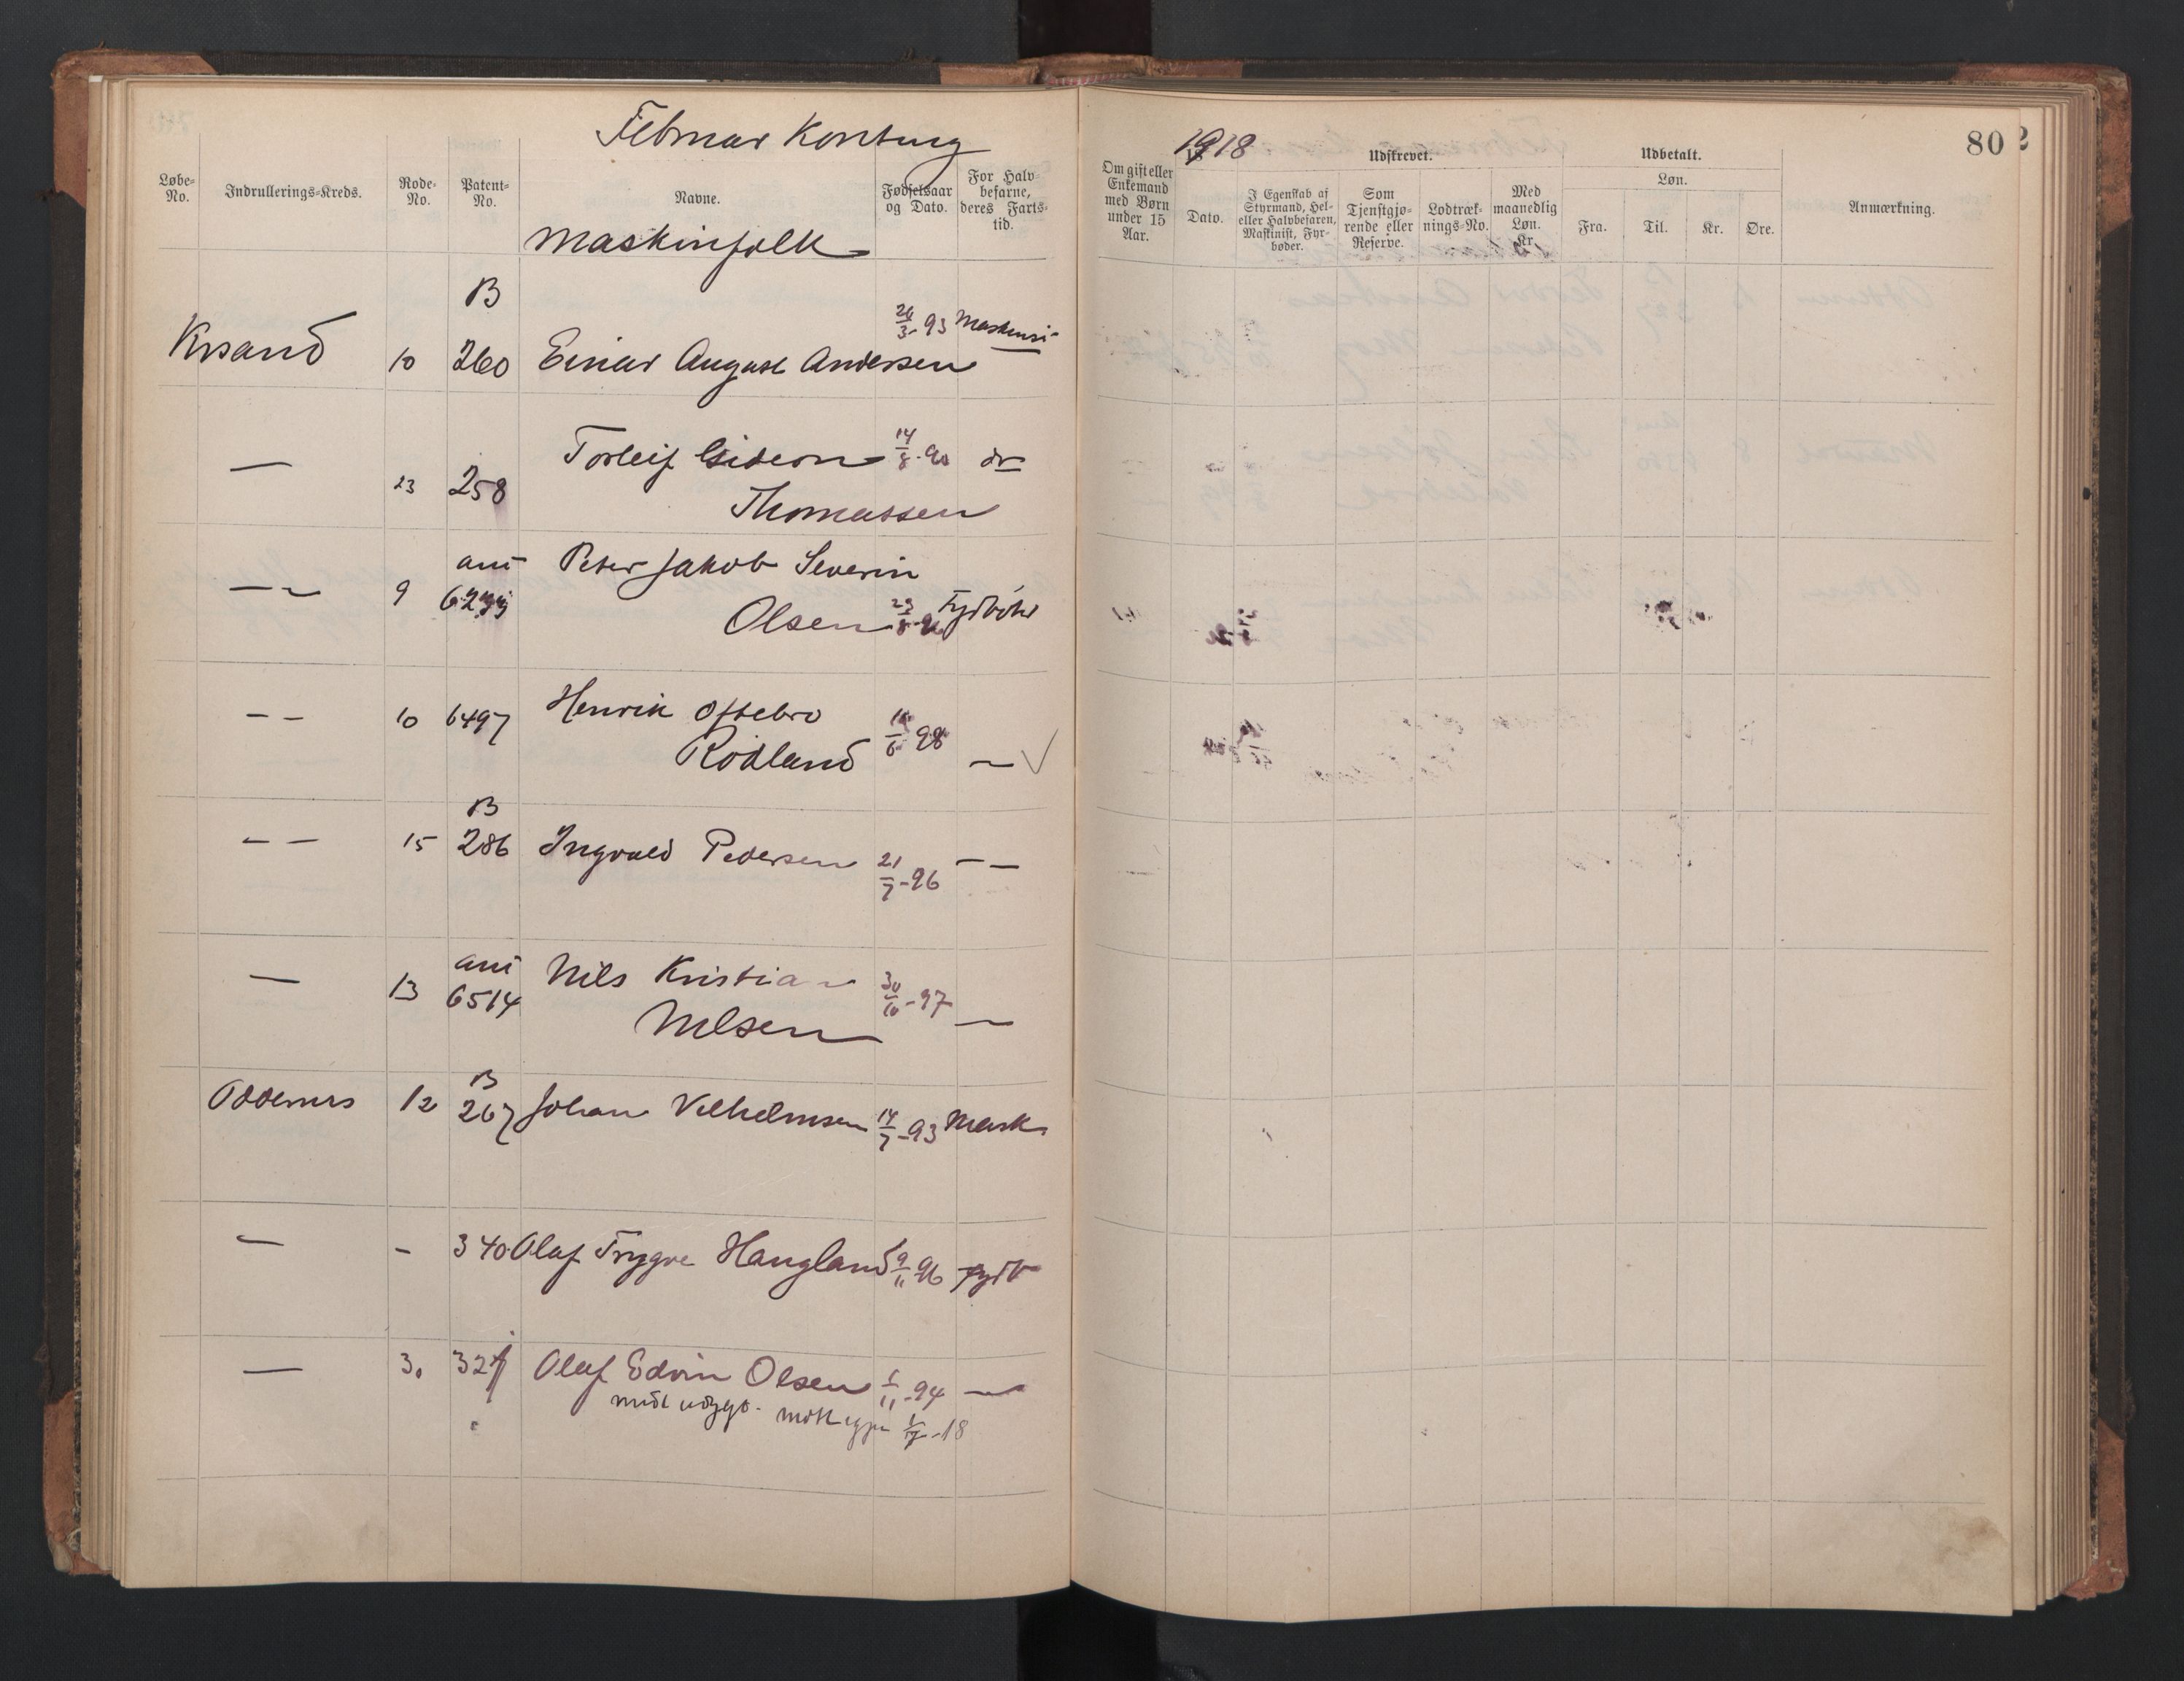 Februar Konting
1918
80
Løbe-No.
Indrullerings-Kreds.
Rode-No.
Patent-No.
Navne.
Fødselsaar og Dato.
For Halvbefarne, deres Fartstid.
Om gift eller Enkemand med Børn under 15 Aar.
Udskrevet.
Dato.
I Egenskab af Styrmand, Hel- eller Halvbefaren, Maskinist, Fyrbøder.
Som Tjenstgjørende eller Reserve.
Lodtræknings-No.
Med maanedlig Løn. Kr.
Udbetalt.
Løn.
Fra.
Til.
Kr.
Øre.
Anmærkning.
Maskinfolk
B
Krsand 10 260 Einar August Andersen 26/3-93 Maskinsi
— 23 258 Torleif Gideon 14/8-90 do
Thomassen
ani Peter Jakob Severin
— 9 Olsen Fyrbøter
— — 10 6497 Henrik Oftebro
Rödland 6-98 — ✓
B
— — 15 286 Ingvald Pedersen 21/7-96 — —
ani
— 13 6514 Nils Kristian 30/10-97 —
Nilsen
B
Oddernes 12 267 Johan Vilhelmsen 14/7-93 Mask
— - 340 Olaf Trygve Haugland 9/11 96 Fyrb
— 30 327 Olaf Edvin Olsen 11-94 —
-18